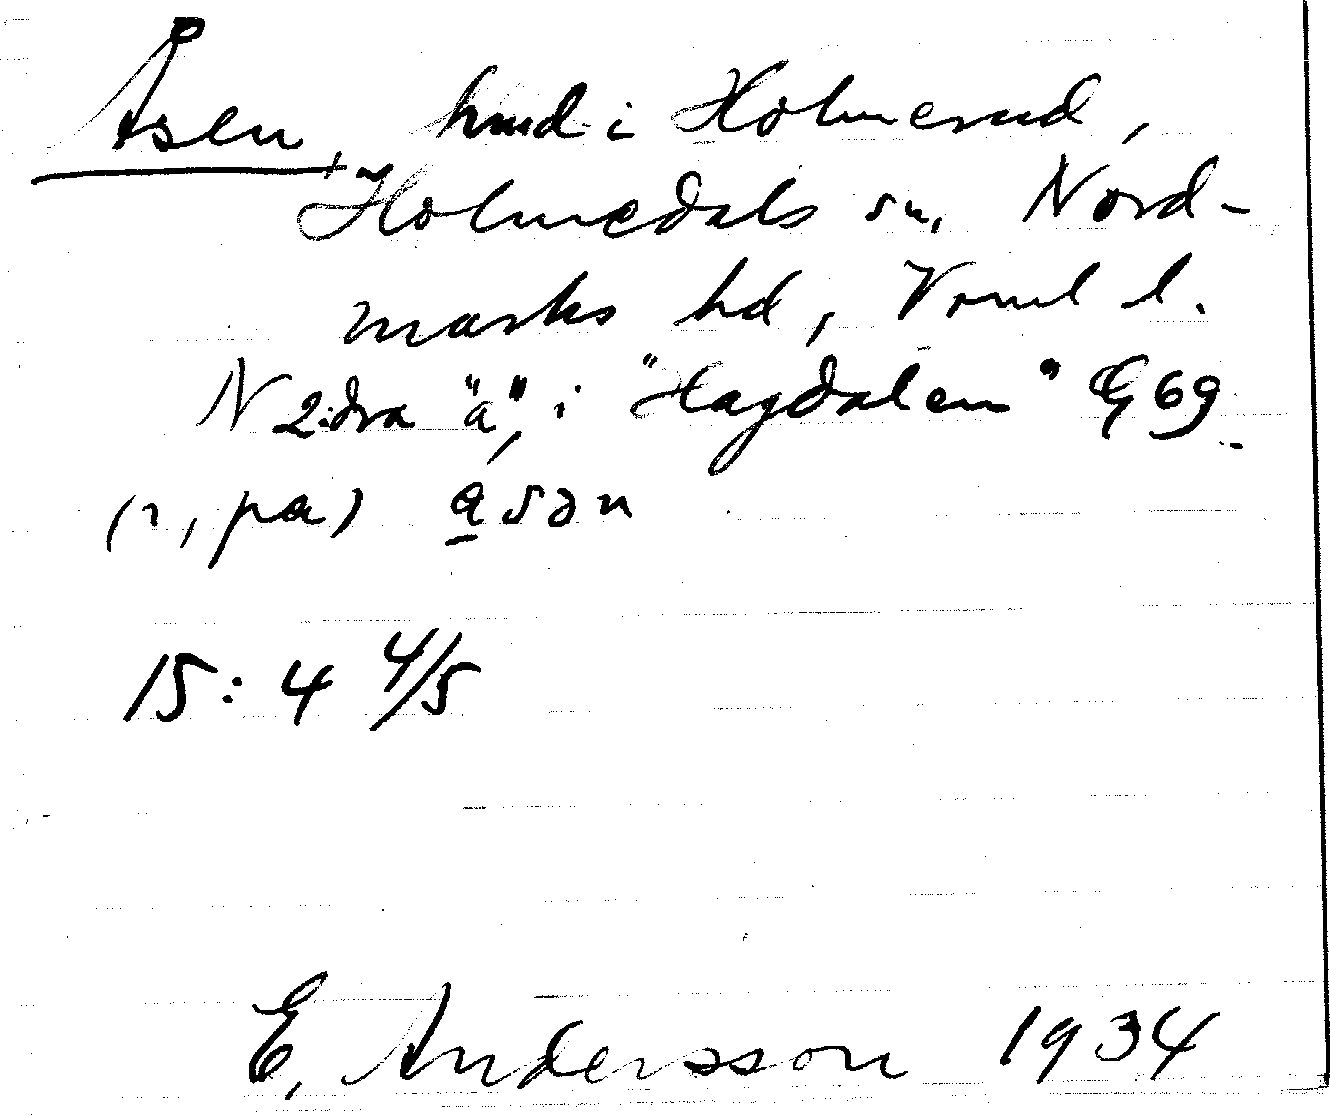 Åsen, hmd i Holmerud,
Holmedals sn, Nord-
marks hd, Vrml l.
N 2:dra "a", i "Hagdalen" G 69
(i, pa) åsən
15: 4 4/5
E. Andersson 1934